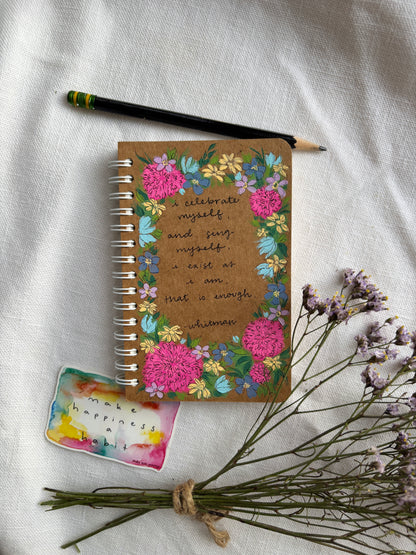 i celebrate
myself,
and sing
myself.
i exist as
i am,
that is enough.
-whitman
make
happiness
a
habit